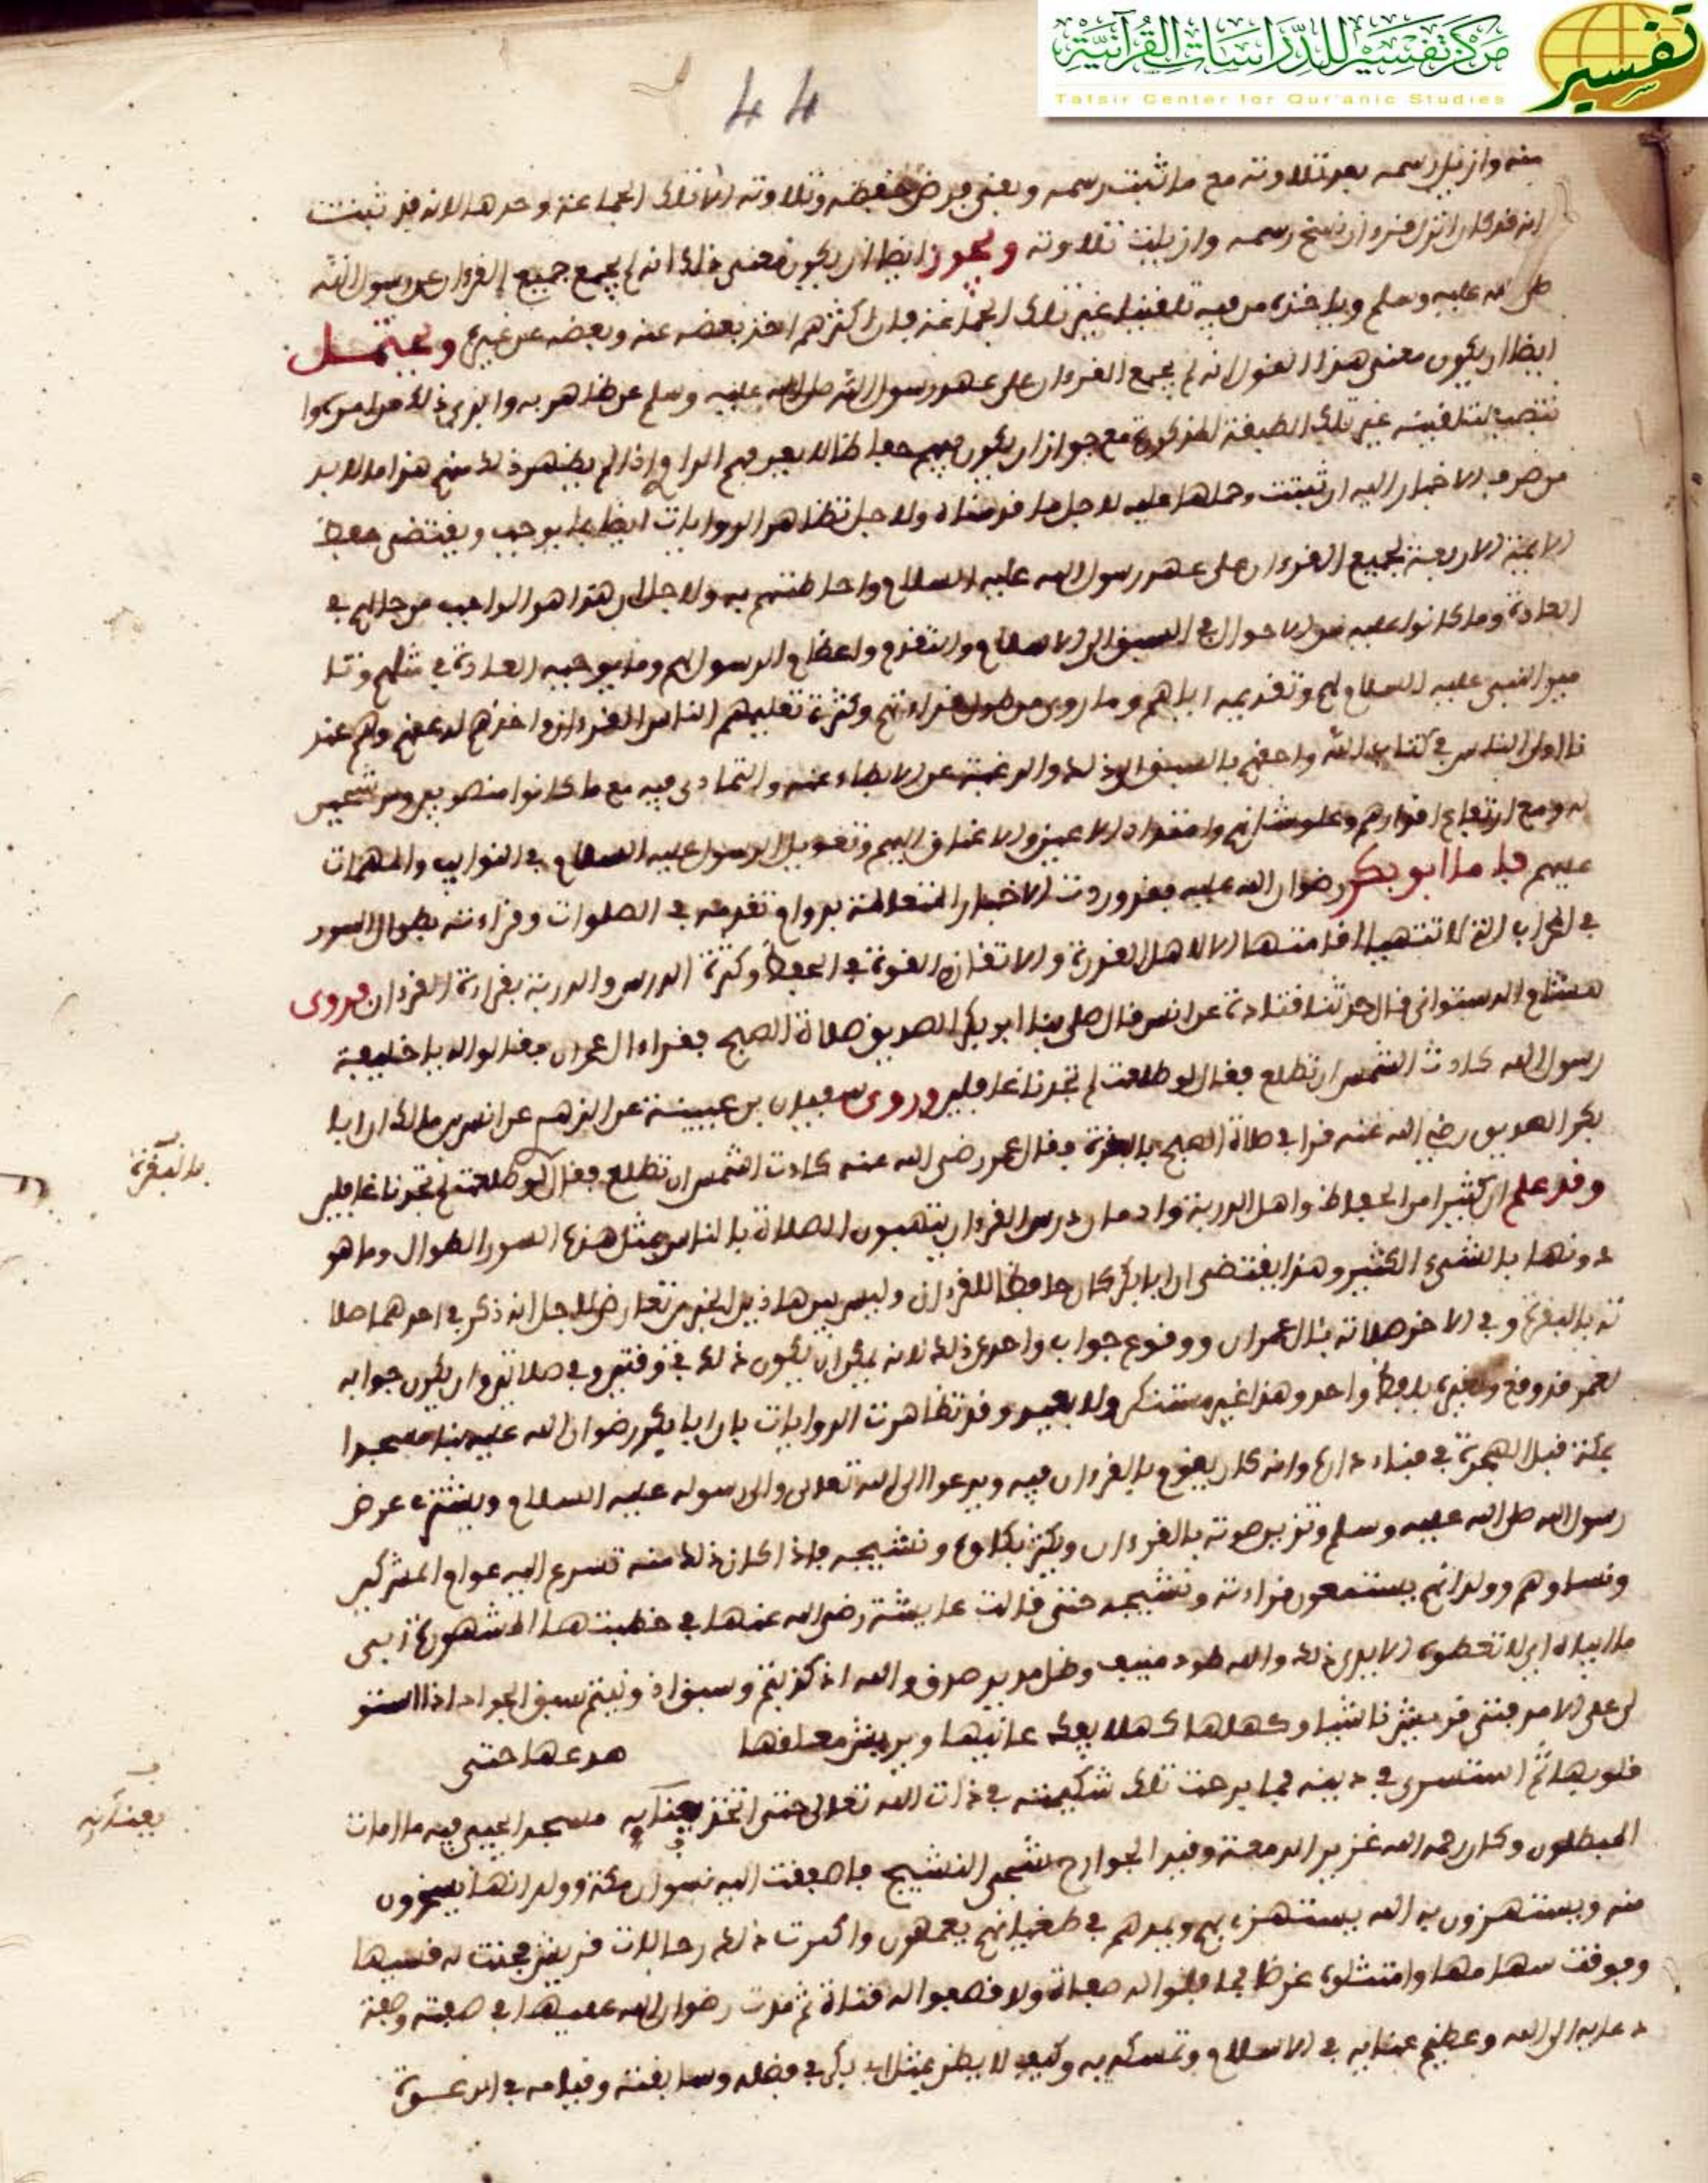 مركز تفسير للدراسات القرآنية
Tafsir Center for Qur'anic Studies
تفسير
44
منه وازيل رسمه بعد تلاوته مع ما ثبت رسمه وبقي فرض حفظه وتلاوته الا تلك الجماعة وحدها لانه قد ثبت
انه قد كان انزل قرءان نسخ رسمه وازيلت تلاوته ويجوز ايضا ان يكون معنى ذلك انه لم يجمع جميع القرءان عن رسول الله
صلى الله عليه وسلم وياخذه من فيه تلقينا غير تلك الجماعة فان اكثرهم اخذ بعضه عنه وبعضه عن غيره ويحتمل
ايضا ان يكون معنى هذا القول انه لم يجمع القرءان على عهد رسول الله صلى الله عليه وسلم من ظاهر به وابدى ذلك من امره
نتصب لتلقينه غير تلك الطبقة المذكورة مع جواز ان يكون فيهم حفاظ لا يعرفهم الراوي اذا لم يظهر ذلك منهم هذا ما لا بد
من صرف الاخبار اليه ان ثبتت وحملها عليه لاجل ما قدمناه ولاجل تظاهر الروايات ايضا بما يوجب ويقتضي حفظ
الايمة الاربعة لجميع القرءان على عهد رسول الله عليه السلام واحاطتهم به ولاجل ان هذا هو الواجب من حالهم في
العادة وما كانوا عليه من الاحوال في السبق الى الاسلام والتقدم واعظام الرسول لهم وما يوجبه العادة في مثلهم وتا
مير النبي عليه السلام لهم وتقديمه اياهم وما روى من طول قراءتهم وكثرة تعليمهم الناس القرءان واخذهم له عنهم وهم عند
نا اولى الناس في كتاب الله واحقهم بالسبق الى ذلك والرغبة عن الابطاء عنه والتمادي فيه مع ما كانوا منصوبين ومرشحين
له ومع ارتفاع اقدارهم وعلو شانهم وامتداد الاعين والاعناق اليهم وتعويل الرسول عليه السلام في النوايب والمهمات
عليهم فاما ابو بكر رضوان الله عليه فقد وردت الاخبار المتعالمة بدوام تقدمه في الصلوات وقراءته بطوال السور
في المحراب التي لا تتهيا اقامتها الا لاهل القدرة والاتقان والقوة في الحفظ وكثرة الدرس والدربة بقراءة القرءان فروى
هشام الدستوائي قال حدثنا قتادة عن انس قال صلى بنا ابو بكر الصديق صلاة الصبح فقرا ءال عمران فقالوا له يا خليفة
رسول الله كادت الشمس ان تطلع فقال لو طلعت لم تجدنا غافلين وروى سفيان بن عيينة عن الزهري عن انس بن مالك ان ابا
بكر الصديق رضي الله عنه قرا في صلاة الصبح بالبقرة فقال عمر رضي الله عنه كادت الشمس ان تطلع فقال لو طلعت لم تجدنا غافلين
بالبقرة
وقد علم ان كثيرا من الحفاظ واهل الدربة وادمان درس القرءان يتهيبون الصلاة بالناس بمثل هذه السور الطوال وما هو
دونها بالشيء الكثير وهذا يقتضي ان ابا بكر كان حافظا للقرءان وليس بين هاذين الخبرين تعارض لاجل انه ذكر في احدهما صلا
ته بالبقرة وفي الاخر صلاته بئال عمران ووقوع جواب واحد في ذلك لانه يمكن ان يكون ذلك في وقتين وفي صلاتين وان يكون جوابه
لعمر قد وقع ولغيره بلفظ واحد وهذا غير مستنكر ولا بعيد وقد تظاهرت الروايات بان ابا بكر رضوان الله عليه بنا مسجدا
بمكة قبل الهجرة في فناء داره وانه كان يقوم بالقرءان فيه ويدعوا الى الله تعالى والى رسوله عليه السلام ويشتري عرض
رسول الله صلى الله عليه وسلم وتزيين صوته بالقرءان ويكثر بكاوه ونشيجه فاذا كان ذلك منه تسرع اليه عوام المشركين
ونساوهم وولدانهم يستمعون قراءته ونشيجه حتى قالت عايشة رضي الله عنها في خطبتها المشهورة ابي
ما ابياه ابي لا تعطوه الايدي ذلك والله طود منيف وظل مديد صدق والله اذ كذبتم وسبق اذ ونيتم سبق الجواد اذا استو
لى على الامد فتى قريش ناشيا وكهفها كهلا يفك عانيها ويريش مملقها صدعها حتى
قلوبها ثم استشرى في دينه فما برحت تلك شكيمته في ذات الله تعالى حتى اتخذ بفنايه مسجدا يحيي فيه ما امات
بفنايه
المبطلون وكان رحمه الله غزير الدمعة وقيد الجوارح شجي النشيج فاصفقت اليه نسوان مكة وولدانها يسخرون
منه ويستهزون به الله يستهزئ بهم ويمدهم في طغيانهم يعمهون واكبرت ذلك رجالات قريش فحنت له قسيها
وفوقت سهامها وامتثلوه غرضا فما فلوا له صفاة ولا قصفوا له قناة ثم مرت رضوان الله عليها في صفته وصفة
دعايه الى الله وعظيم عنايه في الاسلام وتمسكه به وكيف لا يظن بمثل ابي بكر في فضله وسابقته وقيامه في الدعوة